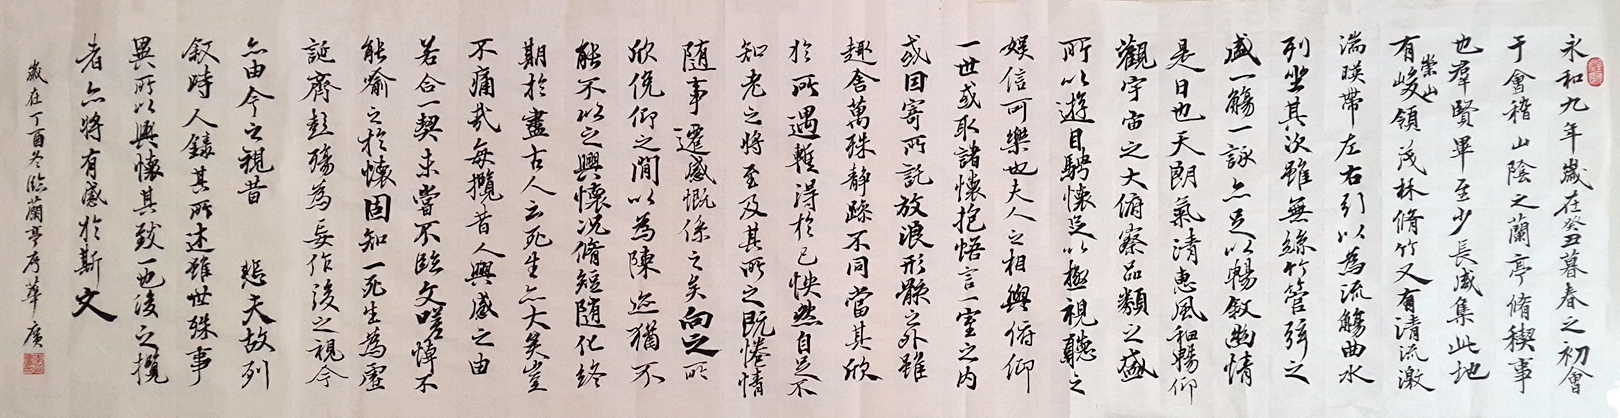 永和九年歲在癸丑暮春之初會
于會稽山陰之蘭亭脩禊事
也羣賢畢至少長咸集此地
有崇山峻領茂林脩竹又有清流激
湍暎帶左右引以為流觴曲水
列坐其次雖無絲竹管弦之
盛一觴一詠亦足以暢敘幽情
是日也天朗氣清惠風和暢仰
觀宇宙之大俯察品類之盛
所以遊目騁懷足以極視聽之
娛信可樂也夫人之相與俯仰
一世或取諸懷抱悟言一室之內
或因寄所託放浪形骸之外雖
趣舍萬殊靜躁不同當其欣
於所遇暫得於己怏然自足不
知老之將至及其所之既惓情
随事遷感慨係之矣向之所
欣俛仰之閒以為陳迹猶不
能不以之興懷況脩短随化終
期於盡古人云死生亦大矣豈
不痛哉每攬昔人興感之由
若合一契未嘗不臨文嗟悼不
能喻之於懷固知一死生為虛
誕齊彭殤為妄作後之視今
亦由今之視昔 悲夫故列
敘時人錄其所述雖世殊事
異所以興懷其致一也後之攬
者亦將有感於斯文
歲在丁酉冬臨蘭亭序華廣